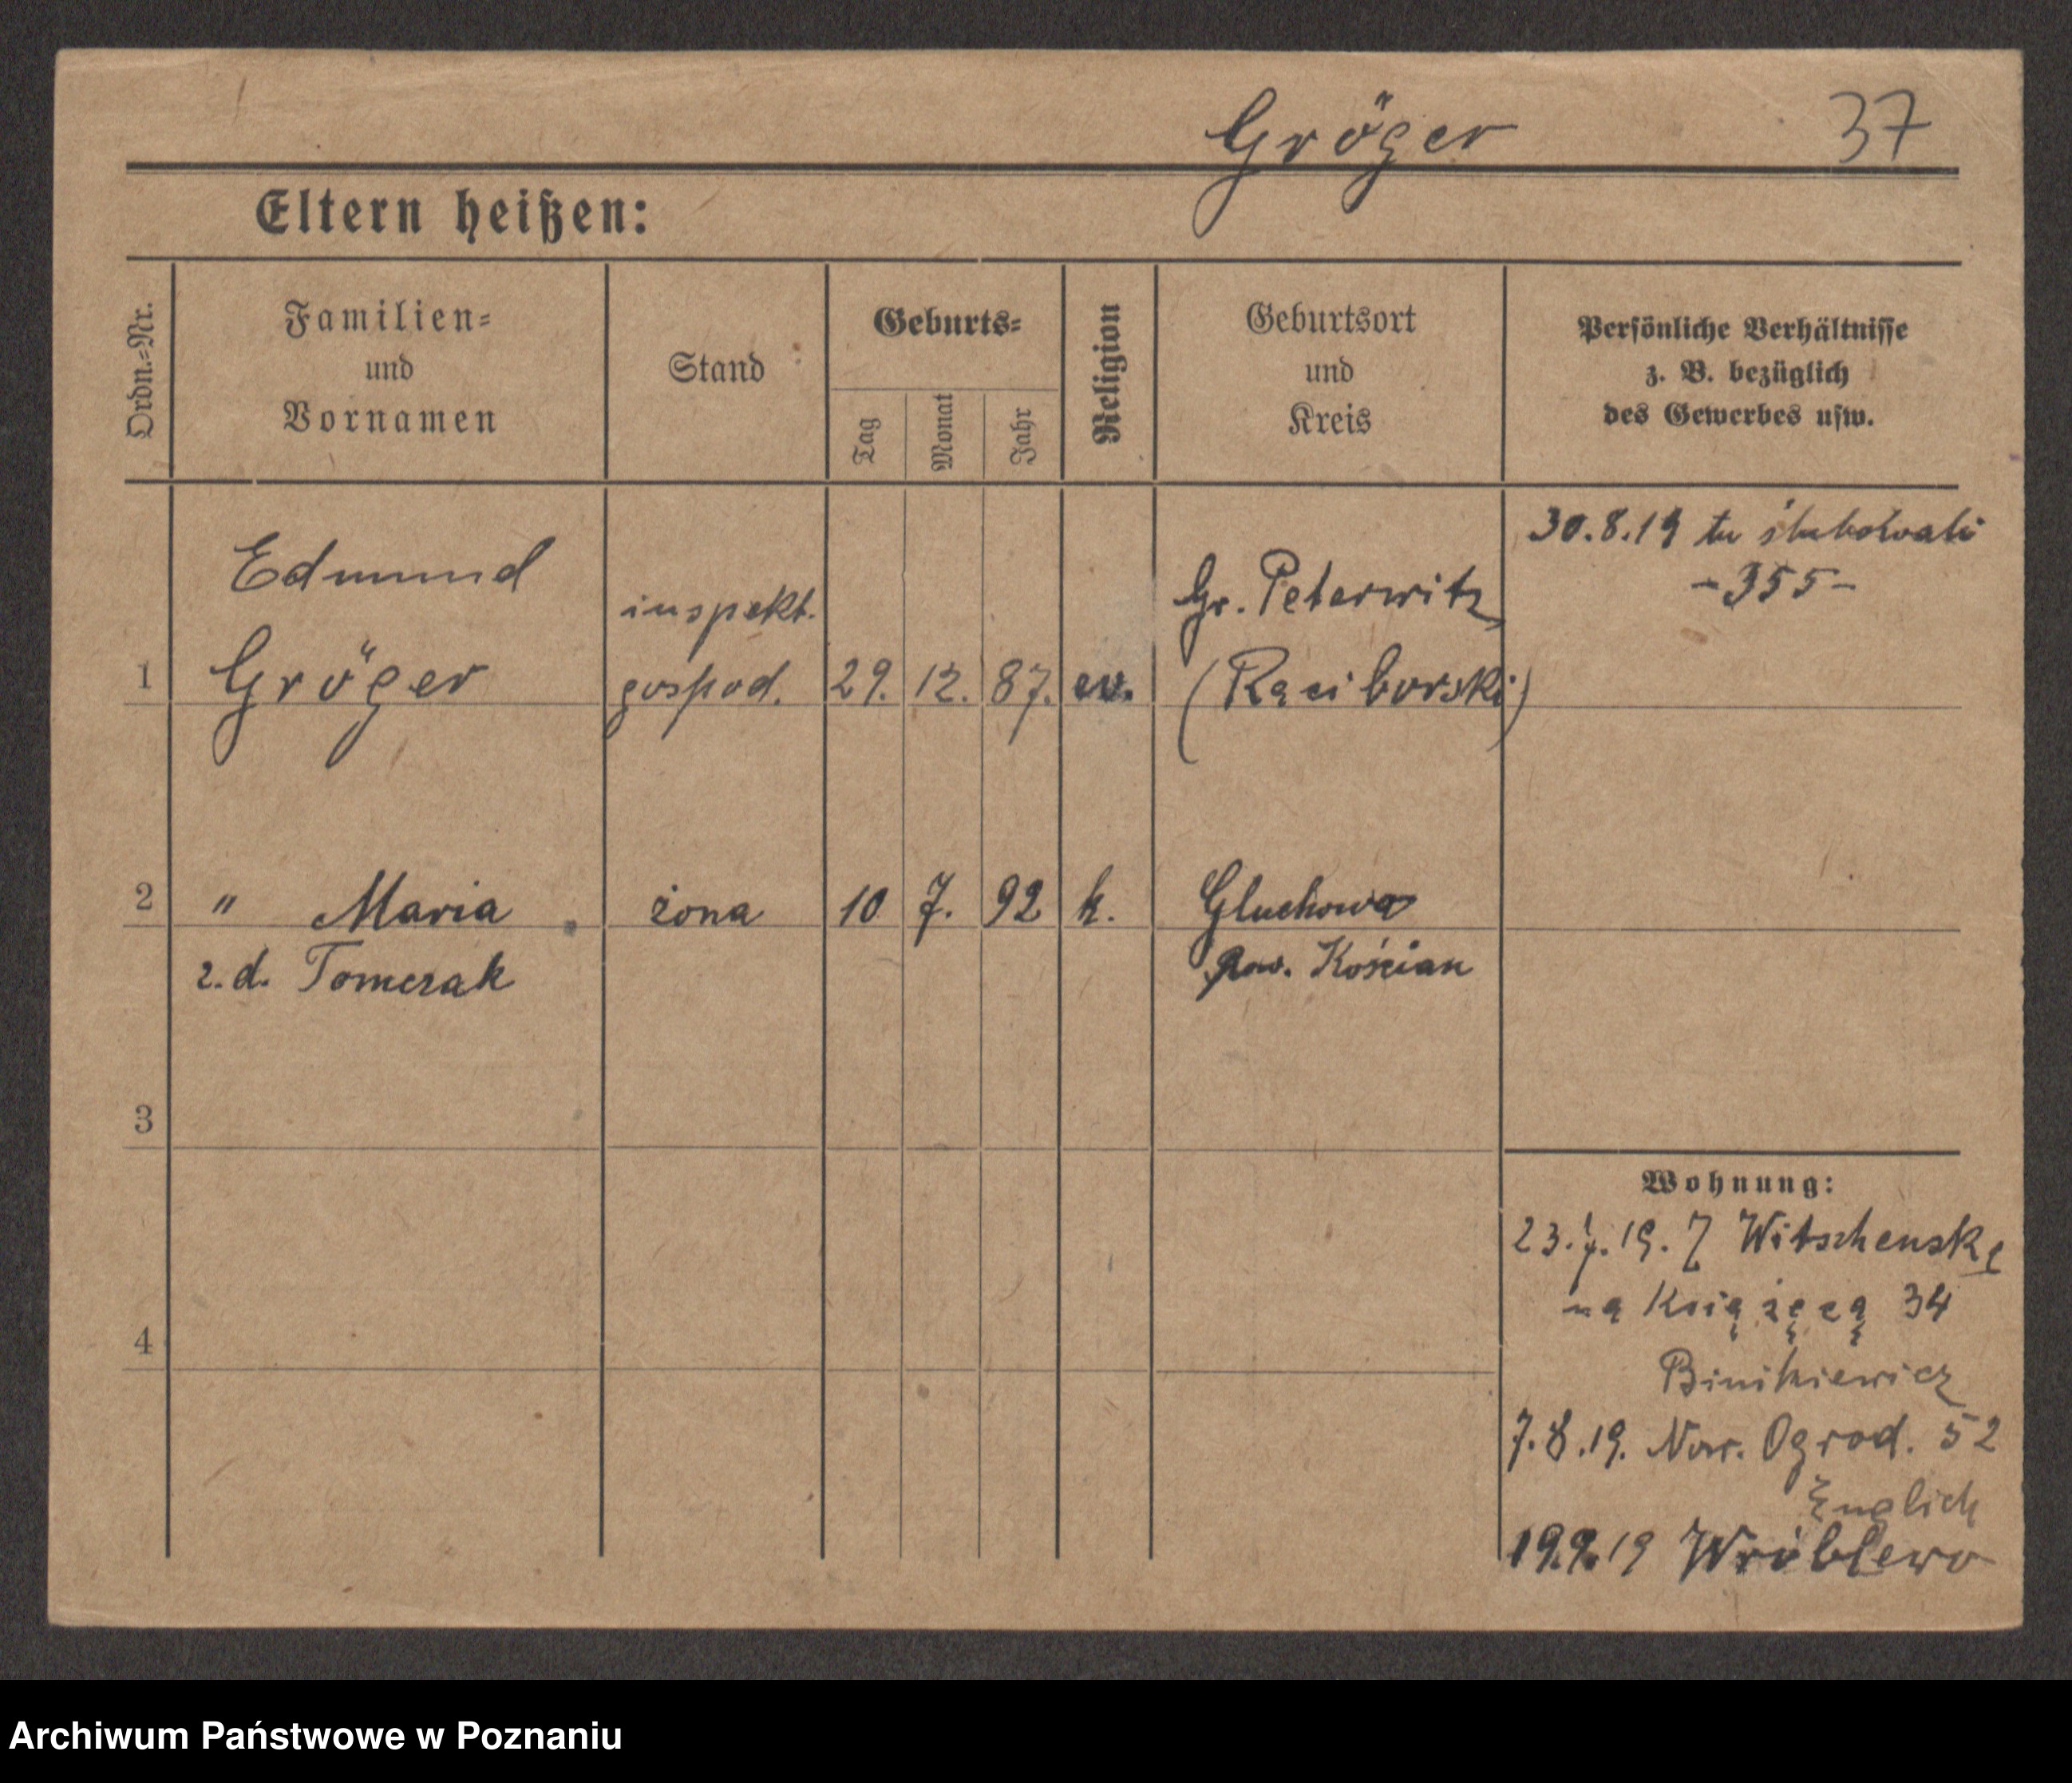 Gröger 37
Eltern heißen:
Ordn.-Nr.
Familien-
und
Vornamen
Stand
Geburts-
Tag
Monat
Jahr
Religion
Geburtsort
und
Kreis
Persönliche Verhältnisse
z. B. bezüglich
des Gewerbes usw.
30.8.19 tu ślubowali
-355-
Edmund
inspekt.
Gr. Peterwitz
1 Gröger gospod. 29. 12. 87. ev. (Raciborski)
2 " Maria żona 10 7. 92 k. Gluchowo
z.d. Tomczak pow. Kościan
3
4
Wohnung:
23.7.19. Z Witschenske
na Książęcą 34
Binikiewicz
7.8.19. Now. Ogrod. 52
Englich
19.9.19 Wróblewo
Archiwum Państwowe w Poznaniu